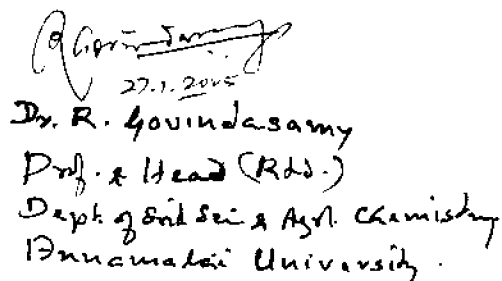 R Govindasamy
27.1.2005
Dr. R. Govindasamy
Prof. & Head (Rtd.)
Dept. of Soil Sci & Agrl. Chemistry
Annamalai University.